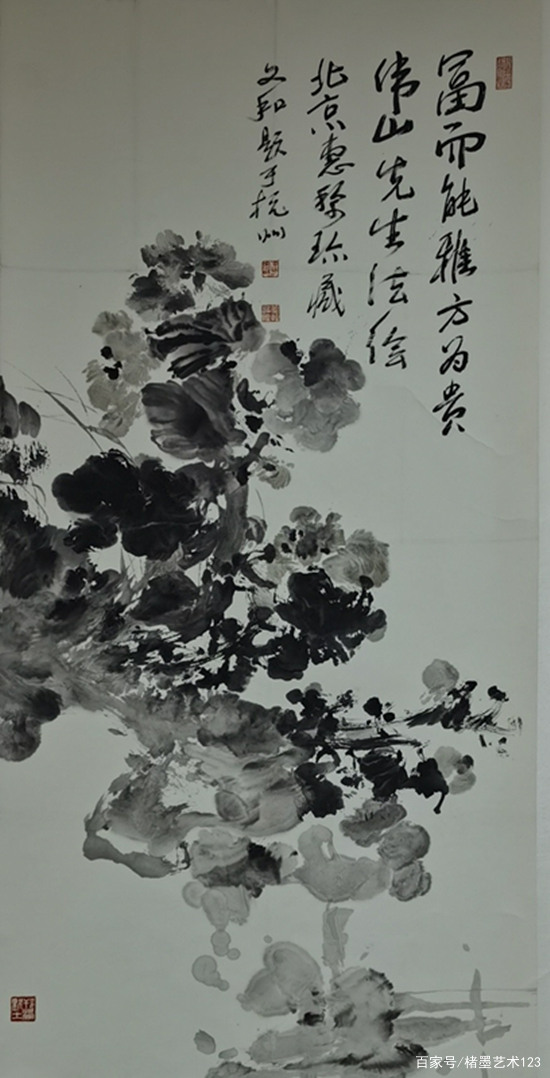 富而能雅方为贵
伟山先生法绘
北京惠黎珍藏
文和题于杭州
百家号/楮墨艺术123